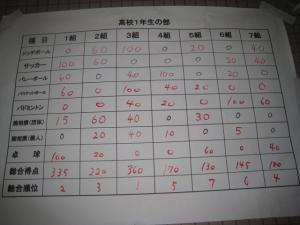 高校1年生の部
種目 1組 2組 3組 4組 5組 6組 7組
ドッヂボール 0 60 100 0 20 0 40
サッカー 100 60 0 0 0 20 40
バレーボール 60 0 40 100 0 20 0
バスケットボール 60 0 100 40 20 0 0
バドミントン 0 0 40 20 0 100 60
百人一首(団体) 15 60 40 0 30 0 0
(個人) 0 20 40 10 0 5 0
卓球 100 20 0 0 60 0 40
総合得点 335 220 360 170 130 145 180
総合順位 2 3 1 5 7 6 4